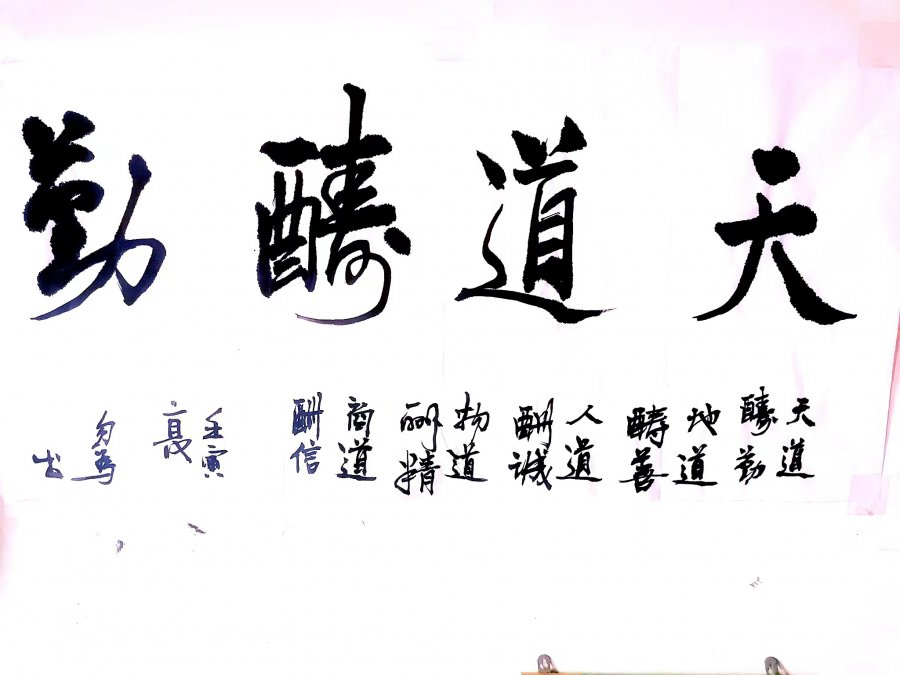 天道酬勤
天道
酬勤
地道
酬善
人道
酬诚
物道
酬精
商道
酬信
壬寅